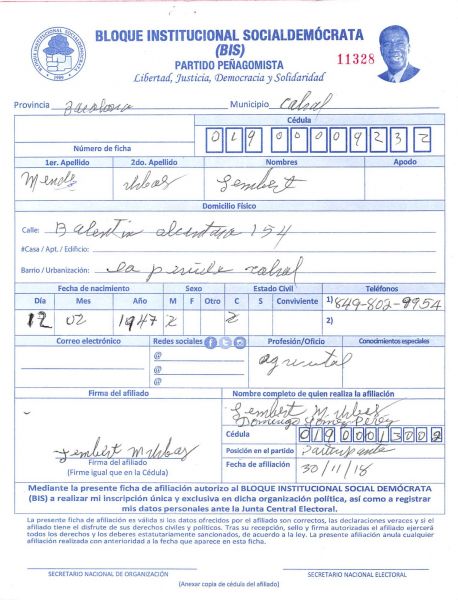 BLOQUE INSTITUCIONAL SOCIALDEMÓCRATA
(BIS)
PARTIDO PEÑAGOMISTA
Libertad, Justicia, Democracia y Solidaridad
11328
Provincia Municipio Cabral
Cédula
Número de ficha 019 0000923 2
1er. Apellido 2do. Apellido Nombres Apodo
Mende Urbas Gembert
Domicilio Físico
Calle: Balentin alcantara 154
#Casa / Apt. / Edificio:
Barrio / Urbanización: la cabral
Fecha de nacimiento Sexo Estado Civil Teléfonos
Día Mes Año M F Otro C S Conviviente 1) 849-802-9954
12 02 1947 2)
Correo electrónico Redes sociales Profesión/Oficio Conocimientos especiales
@
@
@
Firma del afiliado Nombre completo de quien realiza la afiliación
Gembert M. Urbas
Domingo Gomez Perez
Cédula 019 0001300 2
Gembert M Urbas Posición en el partido Participante
Firma del afiliado Fecha de afiliación 30/11/18
(Firme igual que en la Cédula)
Mediante la presente ficha de afiliación autorizo al BLOQUE INSTITUCIONAL SOCIAL DEMÓCRATA
(BIS) a realizar mi inscripción única y exclusiva en dicha organización política, así como a registrar
mis datos personales ante la Junta Central Electoral.
La presente ficha de afiliación es válida si los datos ofrecidos por el afiliado son correctos, las declaraciones veraces y si el
afiliado tiene el disfrute de sus derechos civiles y políticos. Tras su recepción, sello y firma autorizadas el afiliado ejercerá
todos los derechos y los deberes estatutariamente sancionados, de acuerdo a la ley. La presente afiliación anula cualquier
afiliación realizada con anterioridad a la fecha que aparece en esta ficha.
SECRETARIO NACIONAL DE ORGANIZACIÓN SECRETARIO NACIONAL ELECTORAL
(Anexar copia de cédula del afiliado)